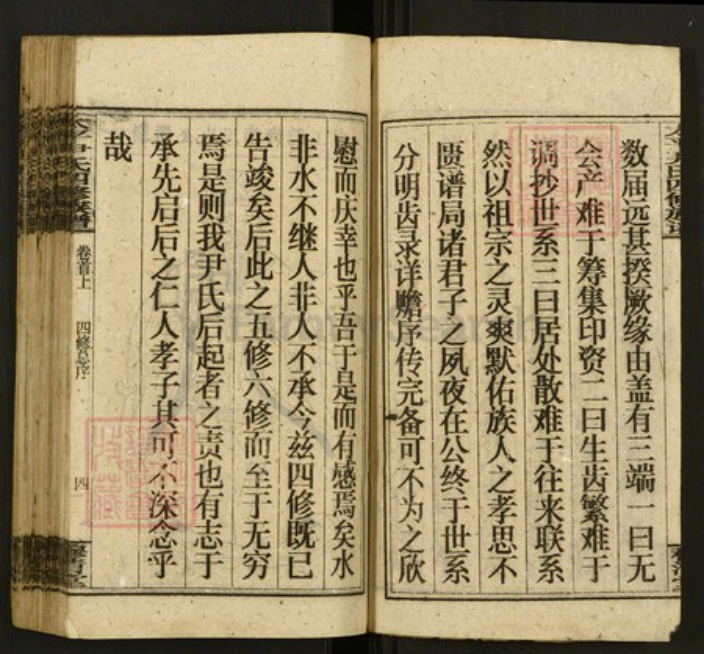 数届远其揆厥缘由盖有三端一曰无
会产难于筹集印资二曰生齿繁难于
调抄世系三曰居处散难于往来联系
然以祖宗之灵爽默佑族人之孝思不
匮谱局诸君子之夙夜在公终于世系
分明齿录详赡序传完备可不为之欣
慰而庆幸也乎吾于是而有感焉矣水
非水不继人非人不承今兹四修既已
告竣矣后此之五修六修而至于无穷
焉是则我尹氏后起者之责也有志于
承先启后之仁人孝子其可不深念乎
哉
尹氏四修族谱
卷首上
四修总序
四